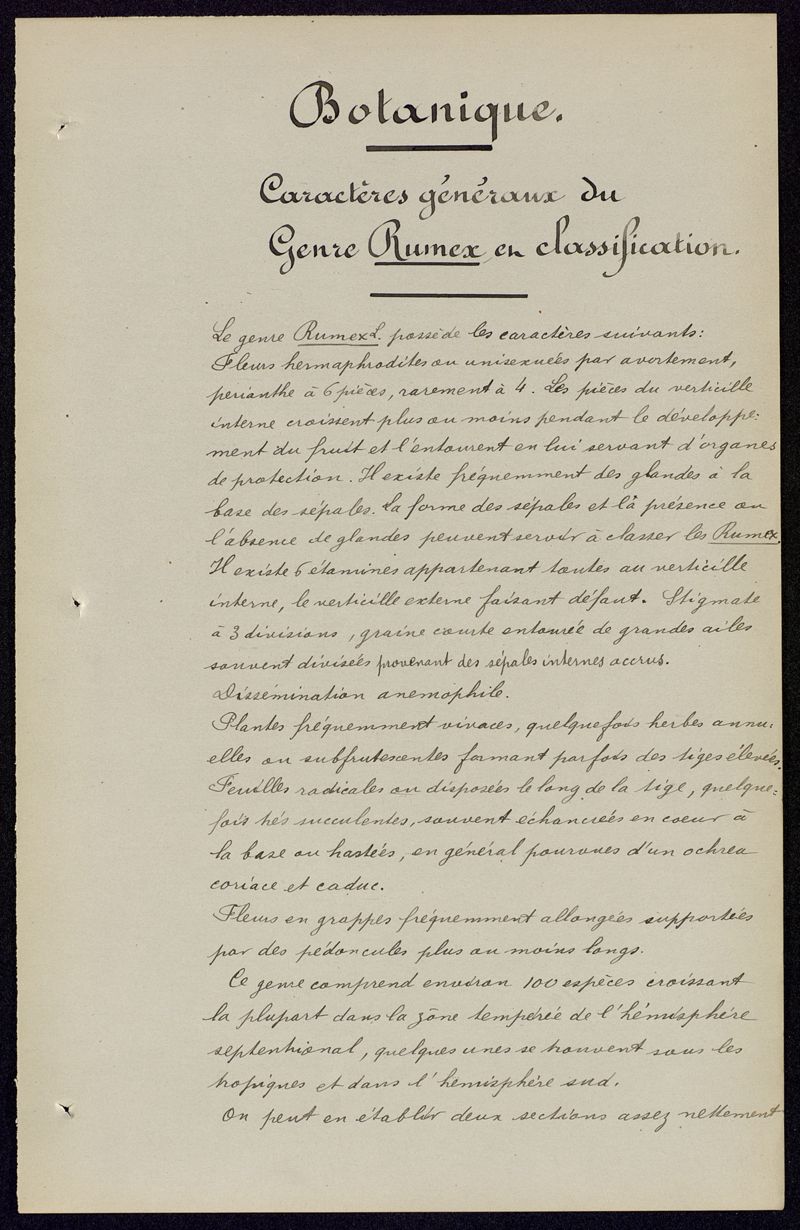 Botanique.
Caractères généraux du
Genre Rumex en classification.
Le genre Rumex L. possède les caractères suivants:
Fleurs hermaphrodites ou unisexuées par avortement,
perianthe à 6 pièces, rarement à 4. Les pièces du verticille
interne croissent plus ou moins pendant le développe:
ment du fruit et l'entourent en lui servant d'organes
de protection. Il existe fréquemment des glandes à la
base des sépales. La forme des sépales et la présence ou
l'absence de glandes peuvent servir à classer les Rumex.
Il existe 6 étamines appartenant toutes au verticille
interne, le verticille externe faisant défaut. Stigmate
à 3 divisions, graine courte entourée de grandes ailes
souvent divisées provenant des sépales internes accrus.
Dissémination anemophile.
Plantes fréquemment vivaces, quelquefois herbes annu:
elles ou subfrutescentes formant parfois des tiges élevées.
Feuilles radicales ou disposées le long de la tige, quelque=
fois très succulentes, souvent échancrées en coeur à
la base ou hastées, en général pourvues d'un ochrea
coriace et caduc.
Fleurs en grappes fréquemment allongées supportées
par des pédoncules plus ou moins longs.
Ce genre comprend environ 100 espèces croissant
la plupart dans la zône tempérée de l'hémisphère
septentrional, quelques unes se trouvent sous les
tropiques et dans l'hémisphère sud.
On peut en établir deux sections assez nettement